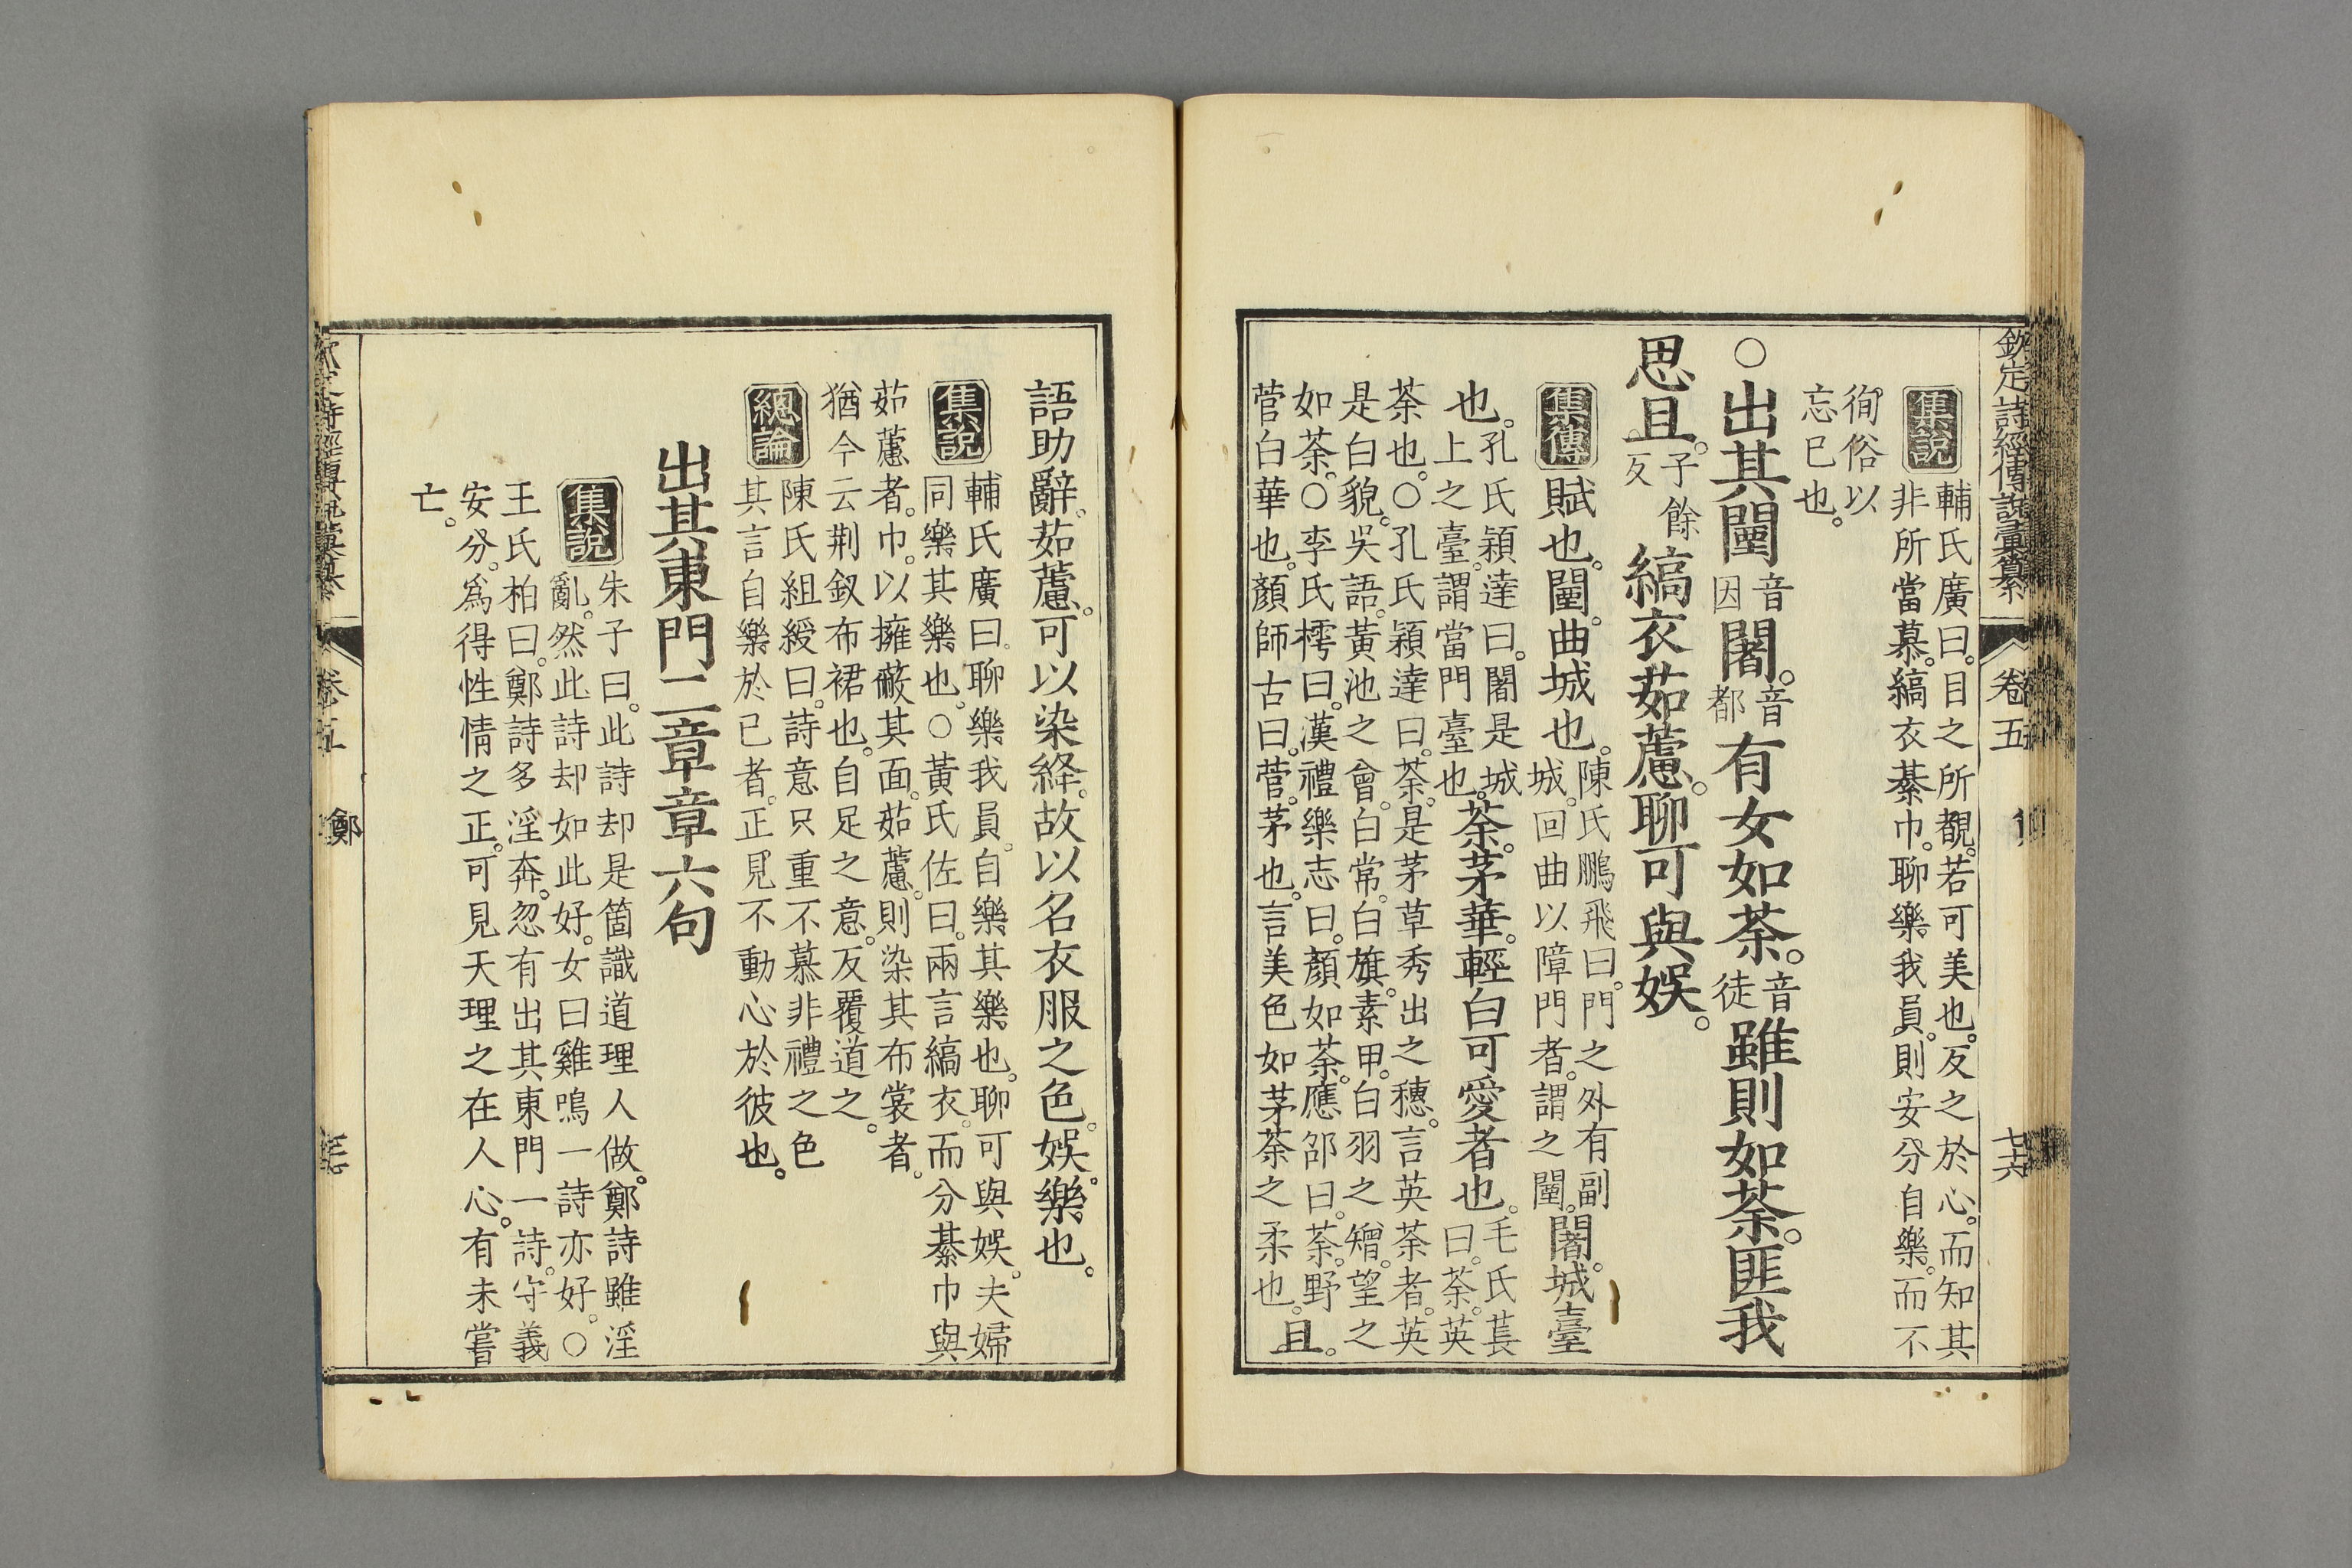 欽定詩經傳說彙纂 卷五 七六
集說 輔氏廣曰。目之所覩。若可美也。反之於心。而知其
非所當慕。縞衣綦巾。聊樂我員。則安分自樂。而不
徇俗以
忘已也。
○出其闉音因闍。音都有女如荼。音徒雖則如荼。匪我
思且。子餘反縞衣茹藘。聊可與娛。
集傳 賦也。闉。曲城也。陳氏鵬飛曰。門之外有副城。回曲以障門者。謂之闉。闍。城臺
也。孔氏穎達曰。闍是城上之臺。謂當門臺也。荼。茅華。輕白可愛者也。毛氏萇曰。荼。英
荼也。○孔氏穎達曰。荼。是茅草秀出之穗。言英荼者。英
是白貌。吳語。黃池之會。白常。白旗。素甲。白羽之矰。望之
如荼。○李氏樗曰。漢禮樂志曰。顏如荼。應邵曰。荼。野
菅白華也。顏師古曰。菅。茅也。言美色如茅荼之柔也。且。
語助辭。茹藘。可以染絳。故以名衣服之色。娛。樂也。
集說 輔氏廣曰。聊樂我員。自樂其樂也。聊可與娛。夫婦
同樂其樂也。○黃氏佐曰。兩言縞衣。而分綦巾與
茹藘者。巾。以擁蔽其面。茹藘。則染其布裳者。
猶今云荆釵布裙也。自足之意。反覆道之。
總論 陳氏組綬曰。詩意只重不慕非禮之色
其言自樂於已者。正見不動心於彼也。
出其東門二章章六句
集說 朱子曰。此詩却是箇識道理人做。鄭詩雖淫
亂。然此詩却如此好。女曰雞鳴一詩亦好。○
王氏柏曰。鄭詩多淫奔。忽有出其東門一詩。守義
安分。爲得性情之正。可見天理之在人心。有未嘗
亡。
卷五 鄭